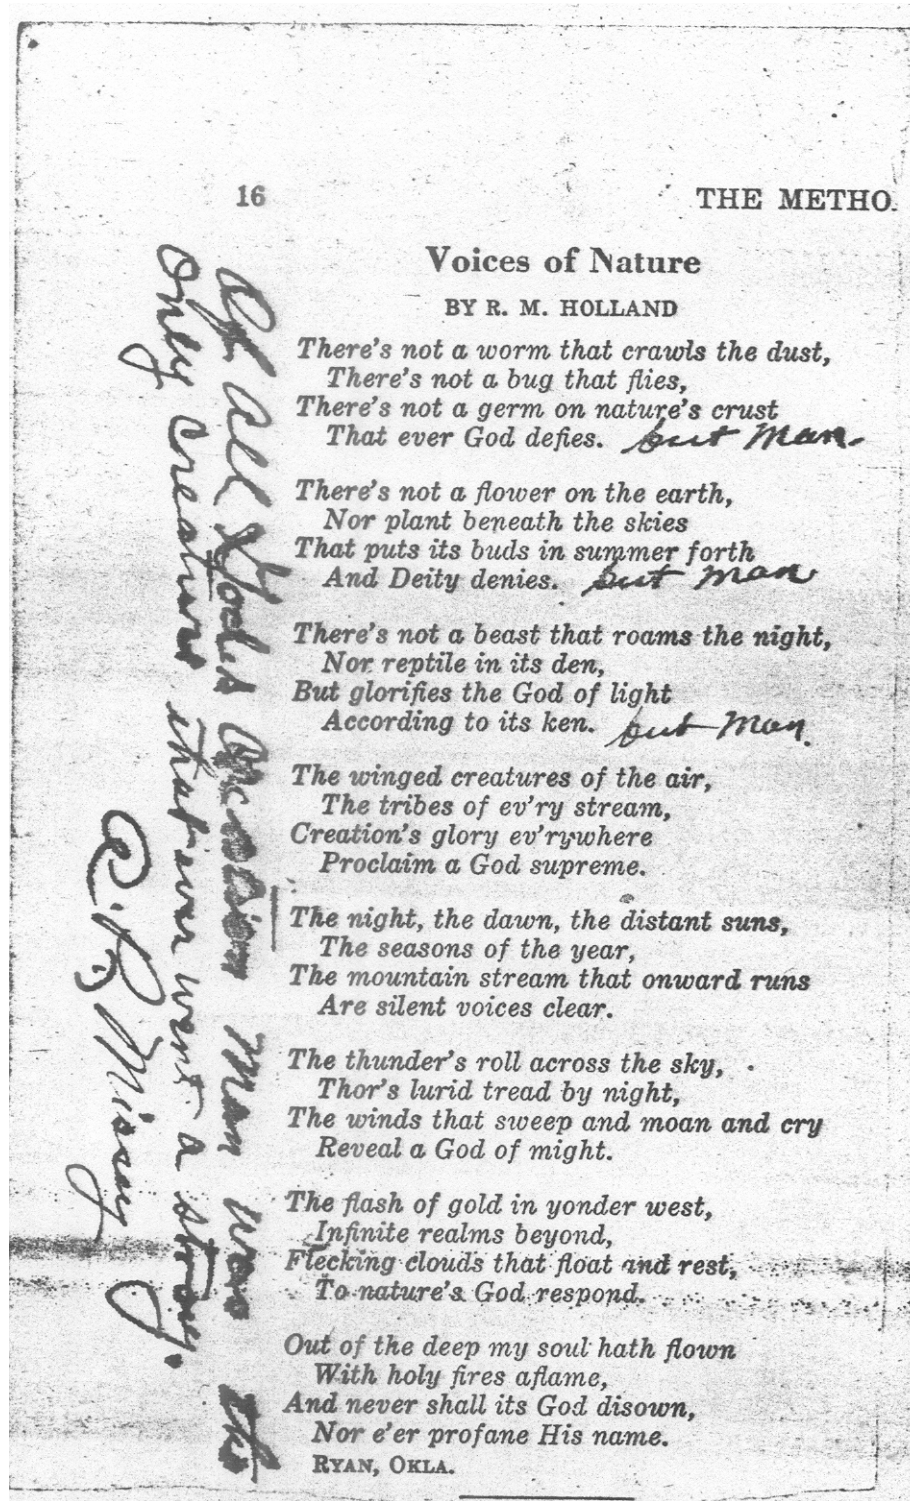 16
THE METHO
Voices of Nature
BY R. M. HOLLAND
There's not a worm that crawls the dust,
There's not a bug that flies,
There's not a germ on nature's crust
That ever God defies. but man.
There's not a flower on the earth,
Nor plant beneath the skies
That puts its buds in summer forth
And Deity denies. but man
There's not a beast that roams the night,
Nor reptile in its den,
But glorifies the God of light
According to its ken. but man.
The winged creatures of the air,
The tribes of ev'ry stream,
Creation's glory ev'rywhere
Proclaim a God supreme.
The night, the dawn, the distant suns,
The seasons of the year,
The mountain stream that onward runs
Are silent voices clear.
The thunder's roll across the sky,
Thor's lurid tread by night,
The winds that sweep and moan and cry
Reveal a God of might.
The flash of gold in yonder west,
Infinite realms beyond,
Flecking clouds that float and rest,
To nature's God respond.
Out of the deep my soul hath flown
With holy fires aflame,
And never shall its God disown,
Nor e'er profane His name.
RYAN, OKLA.
Of all God's Creation man was the
only creature that ever went a stray.